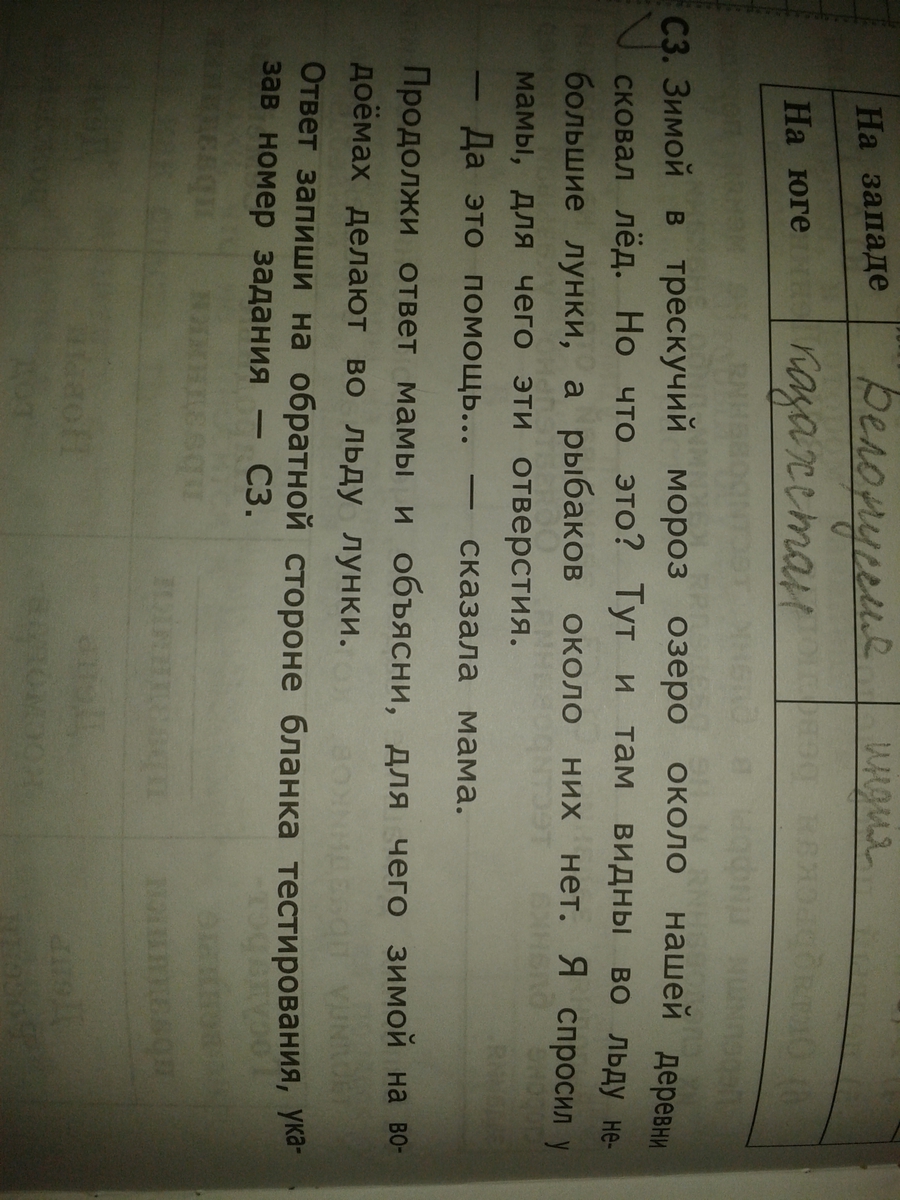 На западе Белоруссия индия
На юге казахстан
С3. Зимой в трескучий мороз озеро около нашей деревни
сковал лёд. Но что это? Тут и там видны во льду не-
большие лунки, а рыбаков около них нет. Я спросил у
мамы, для чего эти отверстия.
— Да это помощь... — сказала мама.
Продолжи ответ мамы и объясни, для чего зимой на во-
доёмах делают во льду лунки.
Ответ запиши на обратной стороне бланка тестирования, ука-
зав номер задания — С3.